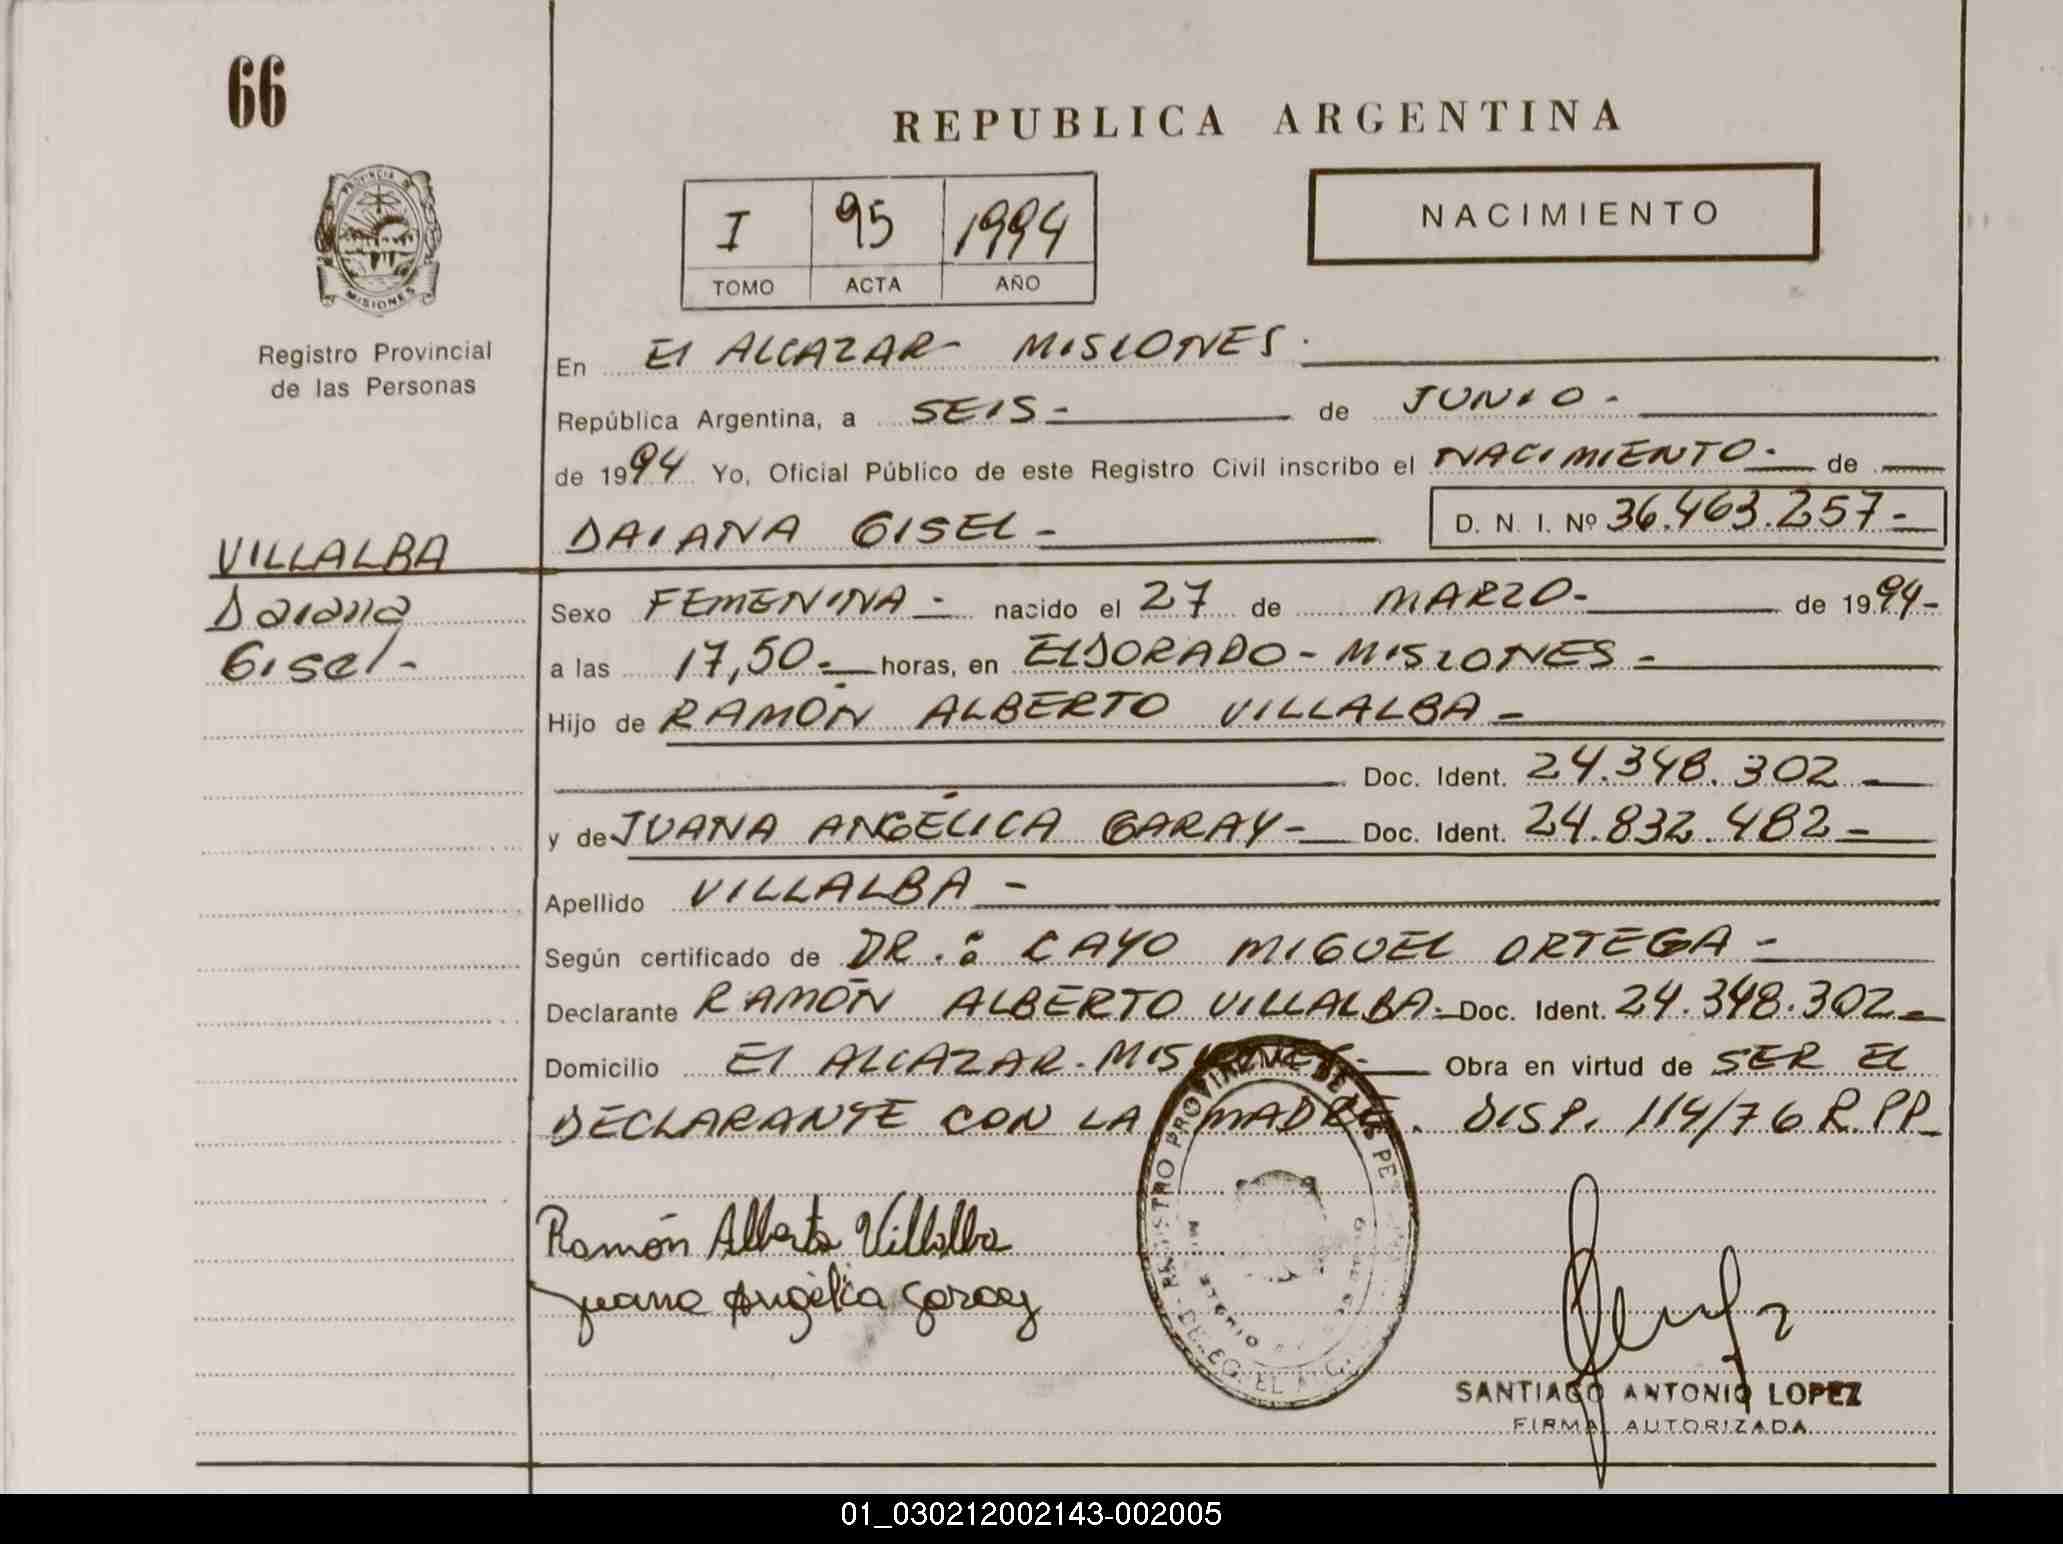 66
REPUBLICA ARGENTINA
I 95 1994
TOMO ACTA AÑO
NACIMIENTO
PROVINCIA DE
MISIONES
Registro Provincial
de las Personas
En El ALCAZAR - MISIONES.
República Argentina, a SEIS - de JUNIO -
de 1994 Yo, Oficial Público de este Registro Civil inscribo el NACIMIENTO - de
DAIANA GISEL - D. N. I. Nº 36.463.257 -
VILLALBA
Daiana
Gisel -
Sexo FEMENINA - nacido el 27 de MARZO - de 1994 -
a las 17,50 - horas, en ELDORADO - MISIONES -
Hijo de RAMÓN ALBERTO VILLALBA -
Doc. Ident. 24.348.302 -
y de JUANA ANGÉLICA GARAY - Doc. Ident. 24.832.482 -
Apellido VILLALBA -
Según certificado de DR.: CAYO MIGUEL ORTEGA -
Declarante RAMÓN ALBERTO VILLALBA - Doc. Ident. 24.348.302 -
Domicilio El ALCAZAR - MISIONES - Obra en virtud de SER EL
DECLARANTE CON LA MADRE. DISP. 114/76 R.PP.
REGISTRO PROVINCIAL DE LAS PE
Ramón Alberto Villalba
Juana Angélica Garay
SANTIAGO ANTONIO LOPEZ
FIRMA AUTORIZADA
01_030212002143-002005